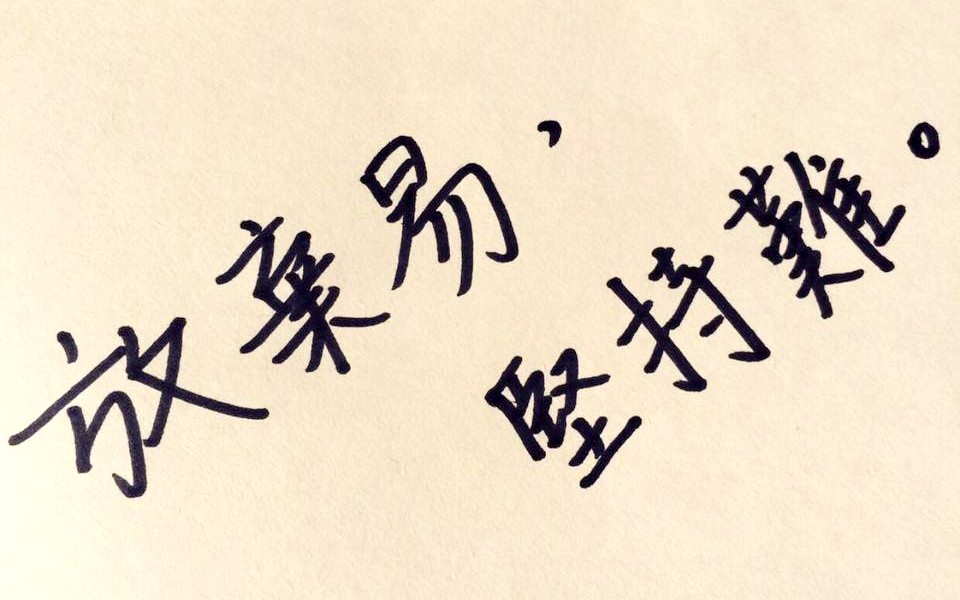 放棄易，
堅持難。